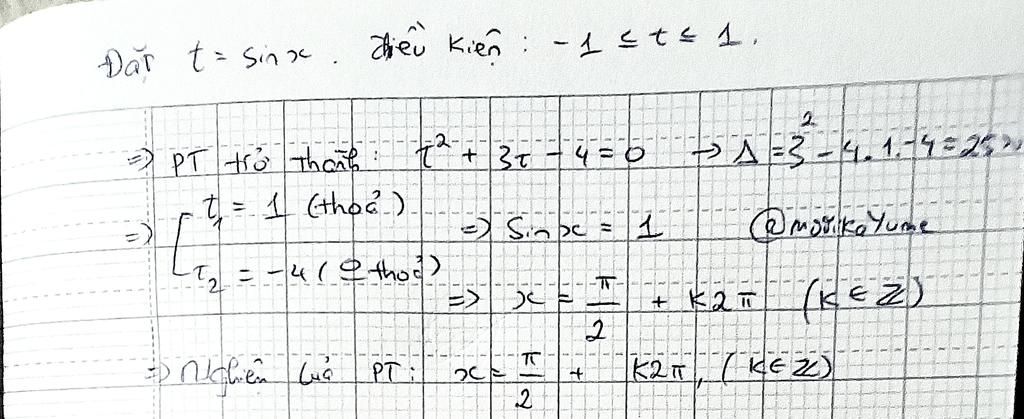 Đặt t = sinx. điều kiện: -1 ≤ t ≤ 1.
=> PT trở thành: t² + 3t - 4 = 0 → Δ = 3² - 4.1.-4 = 25
=> [ t₁ = 1 (thoả) => sinx = 1 @morikaYume
t₂ = -4 (ko thoả)
=> x = π/2 + k2π (k ∈ ℤ)
=> Nghiện của PT: x = π/2 + k2π, (k ∈ ℤ)